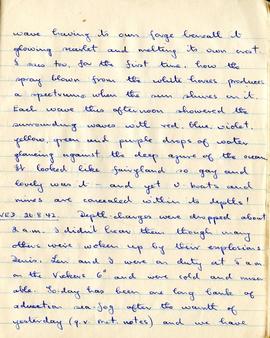 wave having to our forge beneath it
glowing scarlet and melting its own crest
I saw too, for the first time, how the
spray blown from the white horses produces
a spectrum when the sun shines in it.
Each wave this afternoon showered the
surrounding waves with red, blue, violet,
yellow, green and purple drops of water
glancing against the deep azure of the ocean.
It looked like fairyland so gay and
lovely was it – and yet U. boats and
mines are concealed within its depths!
WED 26.8.42. Depth-charges were dropped about
2 a.m. I didn't hear them though many
others were woken up by their explosions
Denis. Len and I were on duty at 5 a.m
on the Vickers 6" and were cold and miser
able. To-day has been one long bank of
advection sea-fog after the warmth of
yesterday (q.v. met. notes) and we have